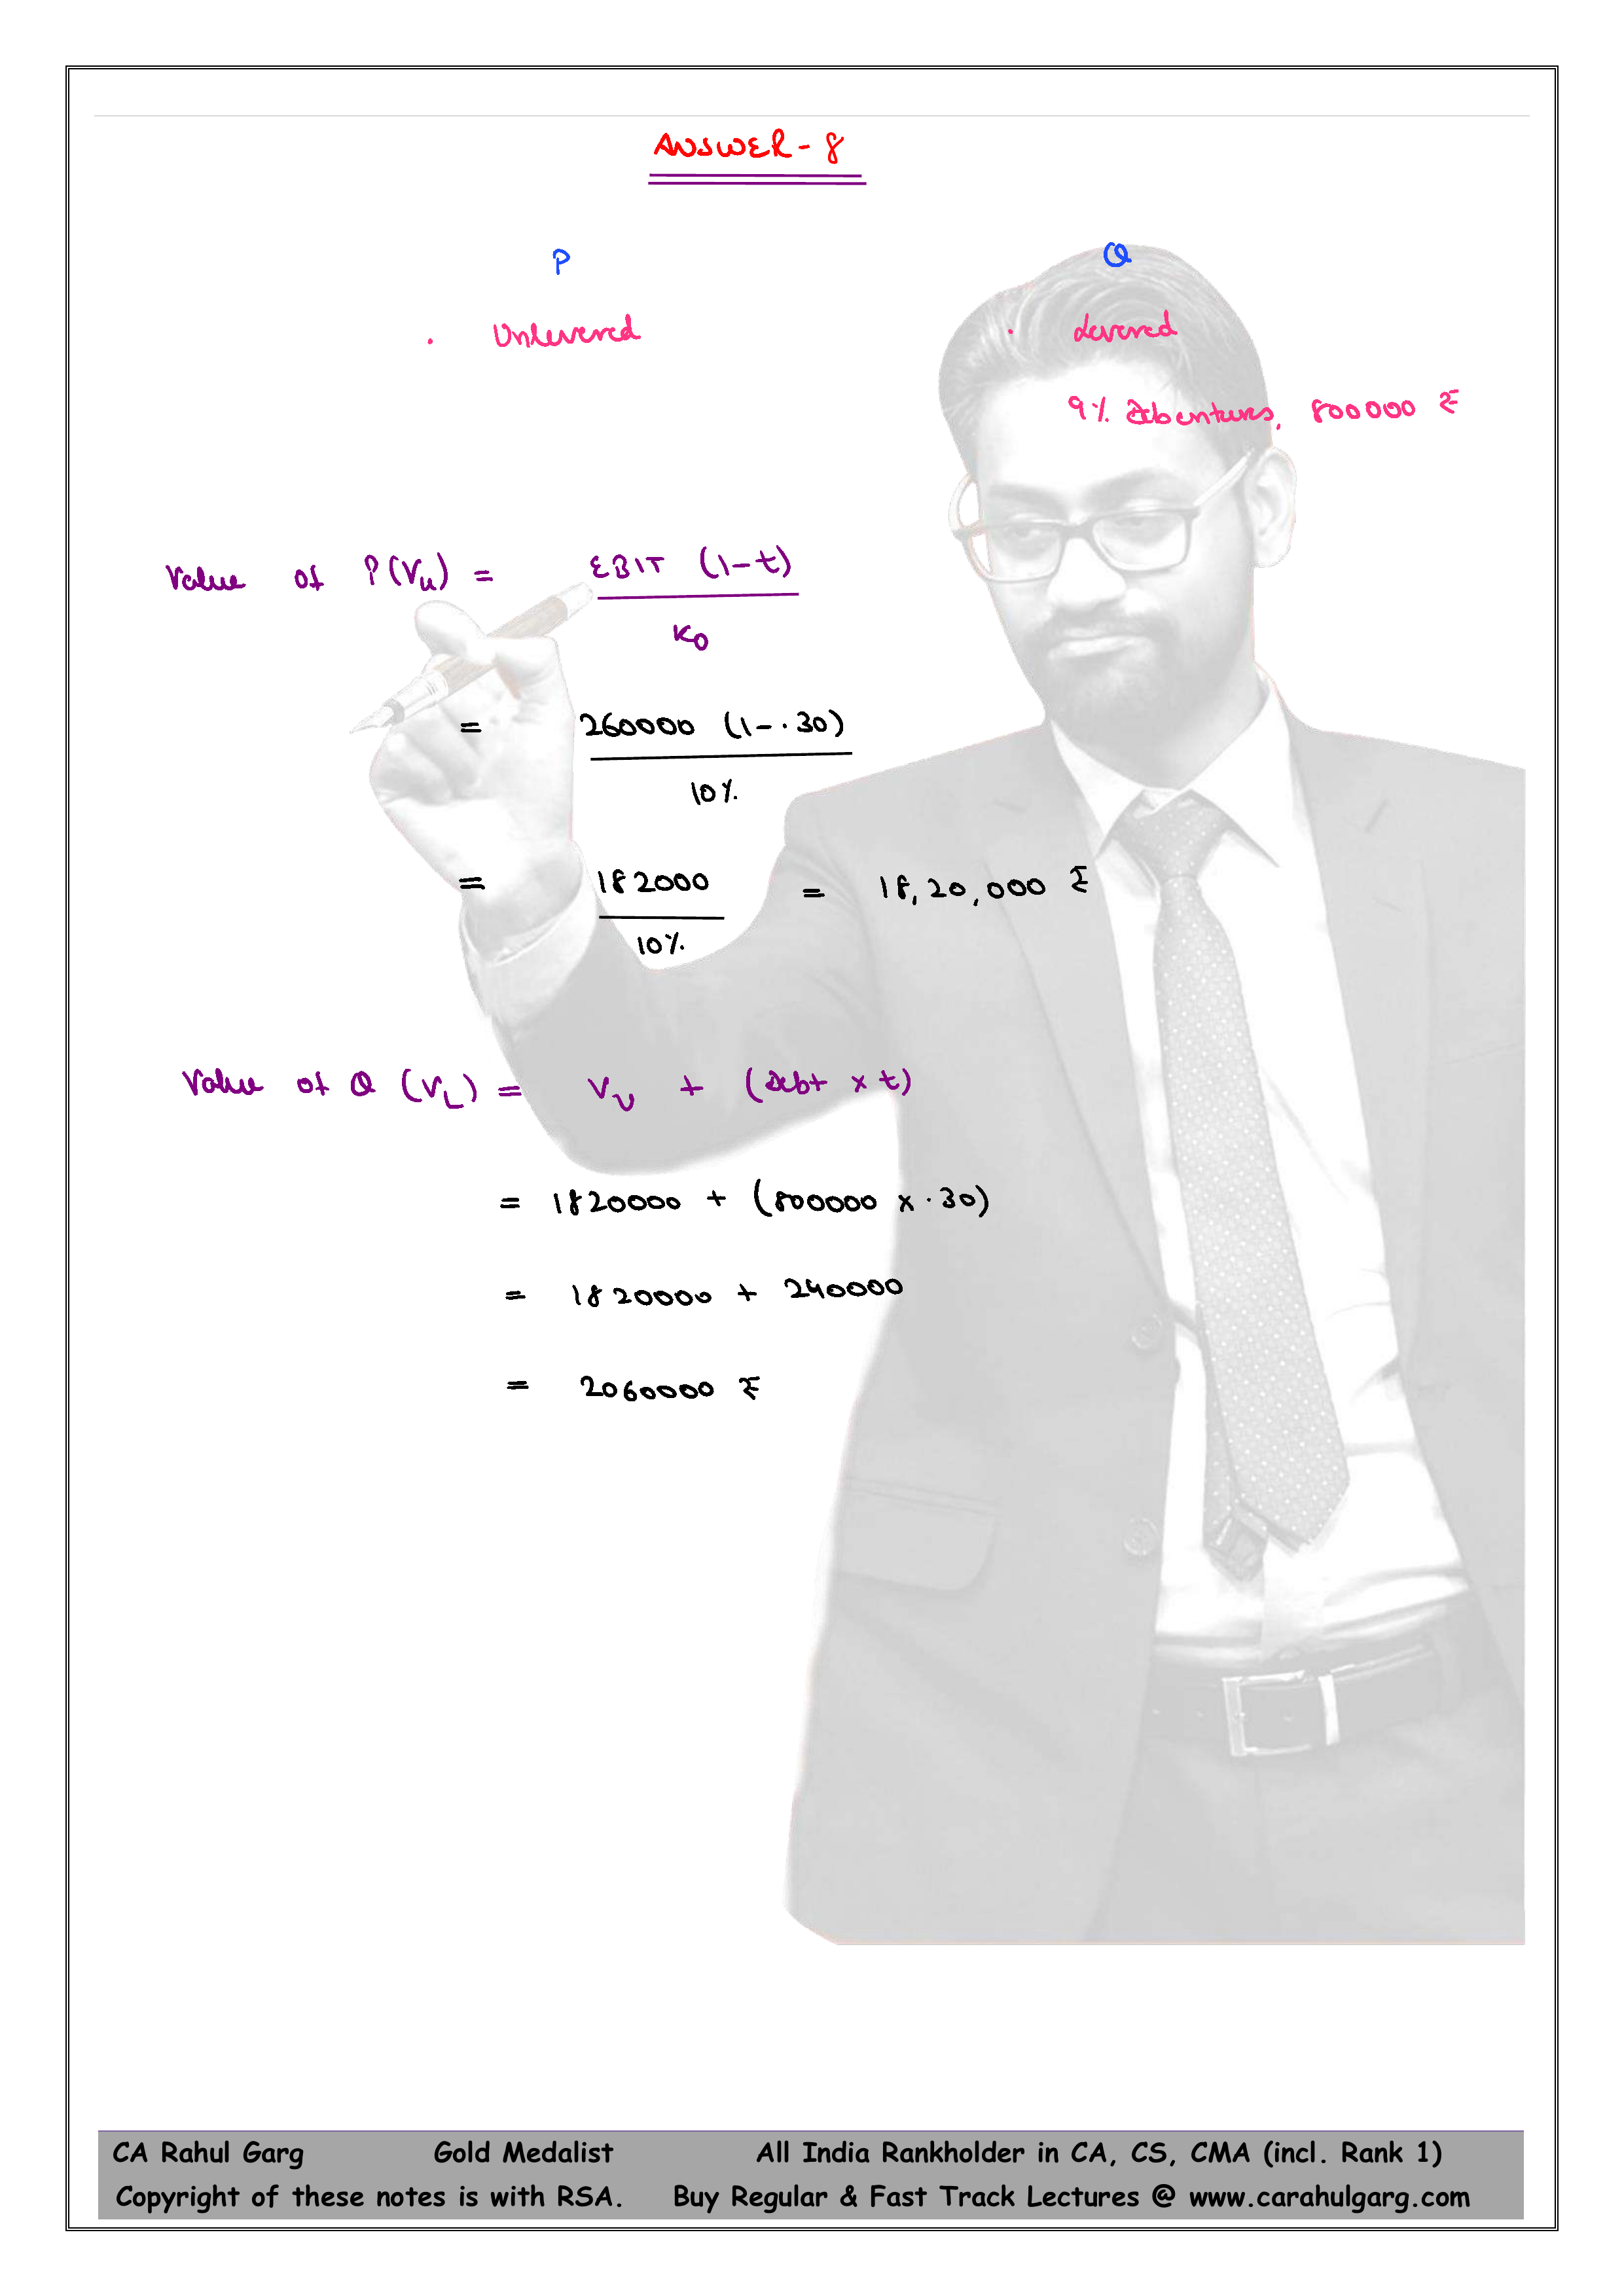 ANSWER - 8
P Q
. Unlevered . Levered
9% Debentures, 800000 ₹
Value of P(Vu) = EBIT (1-t)
Ko
= 260000 (1-.30)
10%
= 182000 = 18,20,000 ₹
10%
Value of Q (VL) = Vu + (Debt x t)
= 1820000 + (800000 x .30)
= 1820000 + 240000
= 2060000 ₹
CA Rahul Garg Gold Medalist All India Rankholder in CA, CS, CMA (incl. Rank 1)
Copyright of these notes is with RSA. Buy Regular & Fast Track Lectures @ www.carahulgarg.com